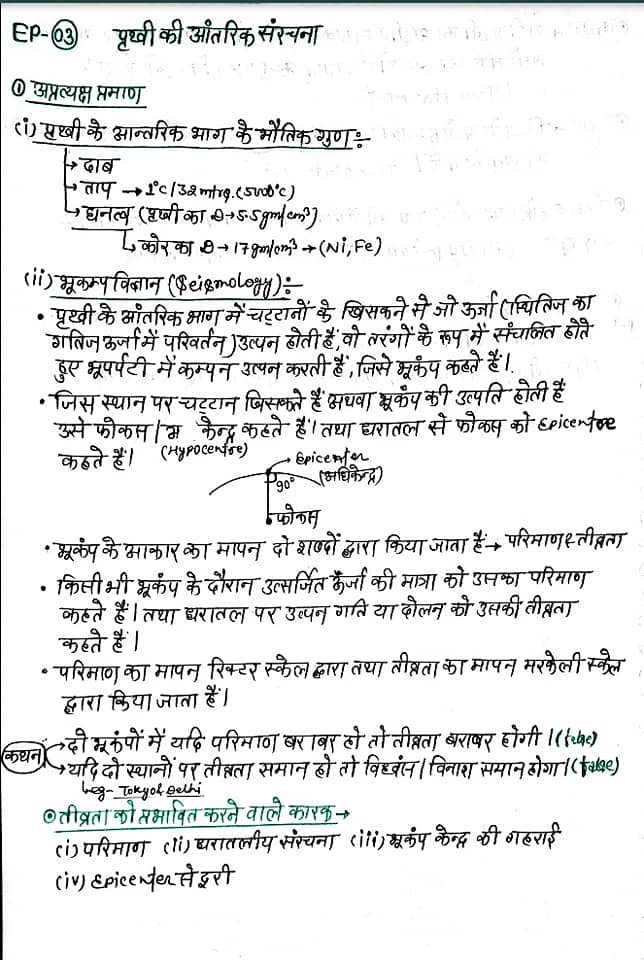 EP-03 पृथ्वी की आंतरिक संरचना
① अप्रत्यक्ष प्रमाण
(i) पृथ्वी के आन्तरिक भाग के भौतिक गुण ÷
→ दाब
→ ताप → 1°C/32mtrs. (5000°C)
→ घनत्व (पृथ्वी का D → 5.5gm/cm³)
→ कोर का D → 17gm/cm³ → (Ni, Fe)
(ii) भूकम्प विज्ञान (Seismology) ÷
• पृथ्वी के आंतरिक भाग में चट्टानों के खिसकने से जो ऊर्जा (स्थितिज का
गतिज ऊर्जा में परिवर्तन) उत्पन होती हैं, वो तरंगों के रूप में संचालित होते
हुए भूपर्पटी में कम्पन उत्पन करती हैं, जिसे भूकंप कहते हैं।
• जिस स्थान पर चट्टान खिसकते हैं अथवा भूकंप की उत्पति होती हैं
उसे फोकस / केन्द्र कहते हैं। तथा धरातल से फोकस को Epicentre
कहते हैं। (Hypocentre)
Epicenter
(अधिकेन्द्र)
90°
फोकस
• भूकंप के आकार का मापन दो शब्दों द्वारा किया जाता हैं → परिमाण & तीव्रता
• किसी भी भूकंप के दौरान उत्सर्जित ऊर्जा की मात्रा को उसका परिमाण
कहते हैं। तथा धरातल पर उत्पन गति या दोलन को उसकी तीव्रता
कहते हैं।
• परिमाण का मापन रिक्टर स्केल द्वारा तथा तीव्रता का मापन मरकेली स्केल
द्वारा किया जाता हैं।
कथन → दो भूकंपों में यदि परिमाण बराबर हो तो तीव्रता बराबर होगी। (false)
→ यदि दो स्थानों पर तीव्रता समान हो तो विध्वंस / विनाश समान होगा। (false)
eg- Tokyo & Delhi
⊙ तीव्रता को प्रभावित करने वाले कारक →
(i) परिमाण (ii) धरातलीय संरचना (iii) भूकंप केन्द्र की गहराई
(iv) Epicenter से दूरी